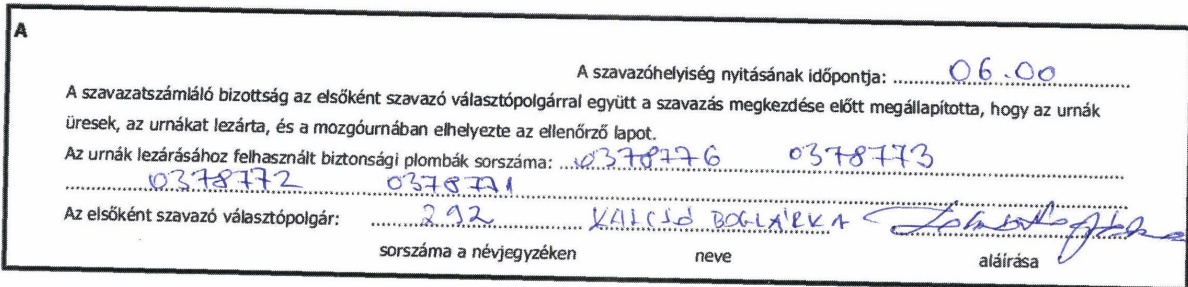 A
A szavazóhelyiség nyitásának időpontja: 06.00
A szavazatszámláló bizottság az elsőként szavazó választópolgárral együtt a szavazás megkezdése előtt megállapította, hogy az urnák
üresek, az urnákat lezárta, és a mozgóurnában elhelyezte az ellenőrző lapot.
Az urnák lezárásához felhasznált biztonsági plombák sorszáma: 0378776 0378773
0378772 0378771
Az elsőként szavazó választópolgár: 292 BOGLÁRKA
sorszáma a névjegyzéken neve aláírása